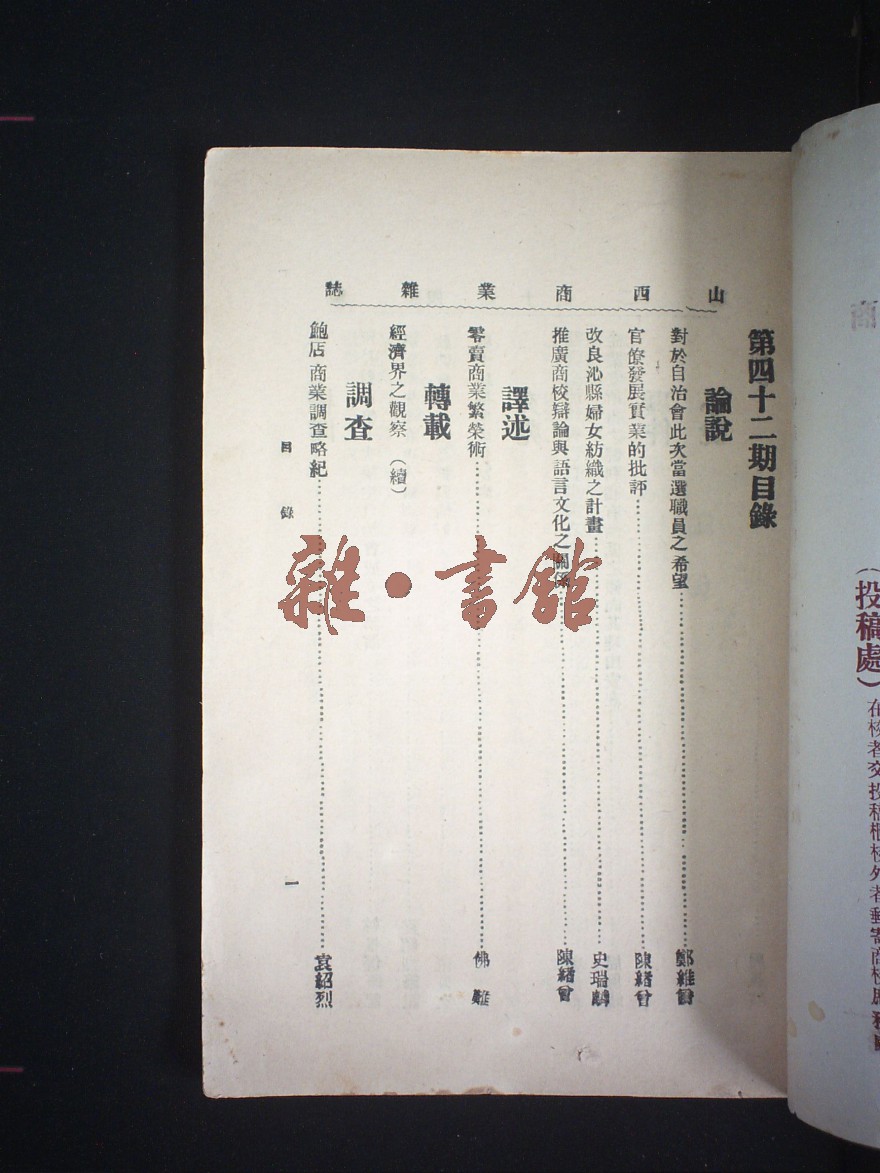 山西商業雜誌
第四十二期目錄
論說
對於自治會此次當選職員之希望……鄭維
官僚發展實業的批評……陳緒曾
改良沁縣婦女紡織之計畫……史瑞麟
推廣商校辯論與語言文化之關係……陳緒曾
譯述
零賣商業繁榮術……佛難
轉載
經濟界之觀察（續）
調查
鮑店商業調查略紀……袁紹烈
目錄
一
雜·書館
（投稿處）
在校者交投稿櫃校外者郵寄商校庶務
商